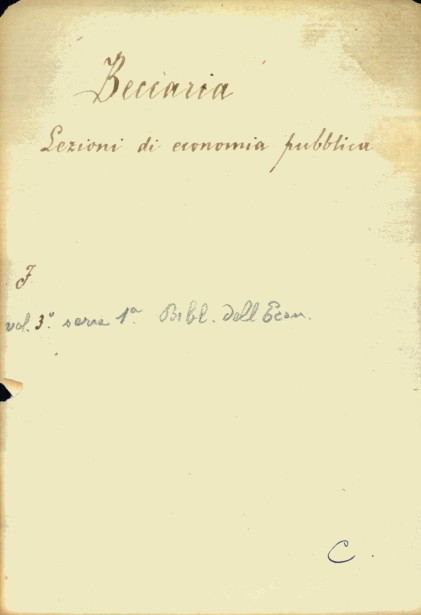 Beccaria
Lezioni di economia pubblica
I
vol. 3°. serie 1ª. Bibl. dell'Econ.
C.